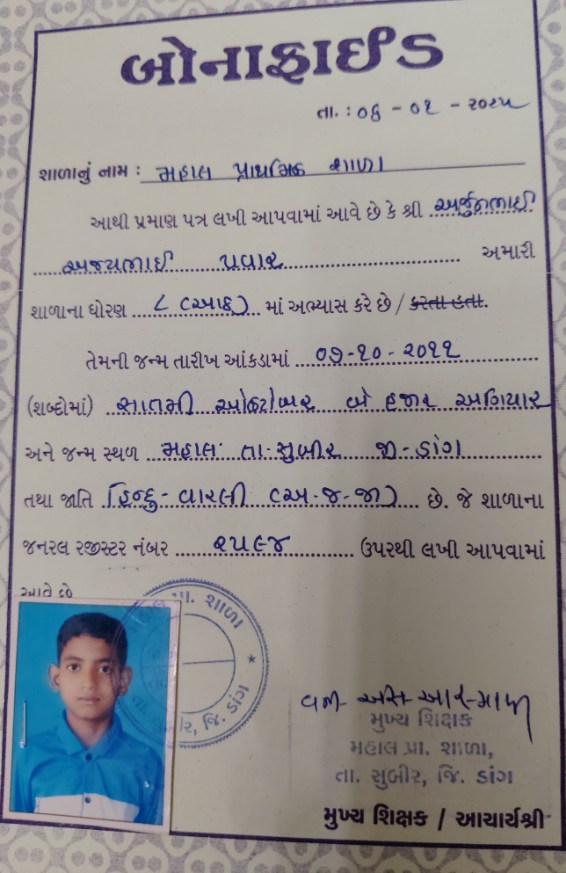 બોનાફાઈડ
તા. : ૦૬ - ૦૧ - ૨૦૨૫
શાળાનું નામ : મહાલ પ્રાથમિક શાળા
આથી પ્રમાણ પત્ર લખી આપવામાં આવે છે કે શ્રી અર્જુનભાઈ
અજયભાઈ પવાર અમારી
શાળાના ધોરણ ૮ (આઠ) માં અભ્યાસ કરે છે / કરતા હતા.
તેમની જન્મ તારીખ આંકડામાં ૦૭-૧૦-૨૦૧૧
(શબ્દોમાં) સાતમી ઓક્ટોબર બે હજાર અગિયાર
અને જન્મ સ્થળ મહાલ તા. સુબીર જી-ડાંગ
તથા જાતિ હિન્દુ-વારલી (અ-જ-જા) છે. જે શાળાના
જનરલ રજીસ્ટર નંબર ૨૫૯૪ ઉપરથી લખી આપવામાં
આવે છે
પ્રા. શાળા
જિ. ડાંગ
મુખ્ય શિક્ષક
મહાલ પ્રા. શાળા,
તા. સુબીર, જિ. ડાંગ
મુખ્ય શિક્ષક / આચાર્યશ્રી